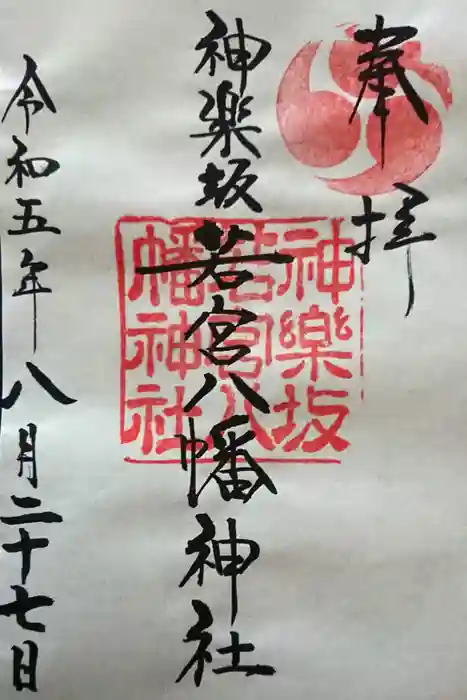 奉拝
神楽坂若宮八幡神社
神樂坂
若宮八
幡神社
令和五年八月二十七日